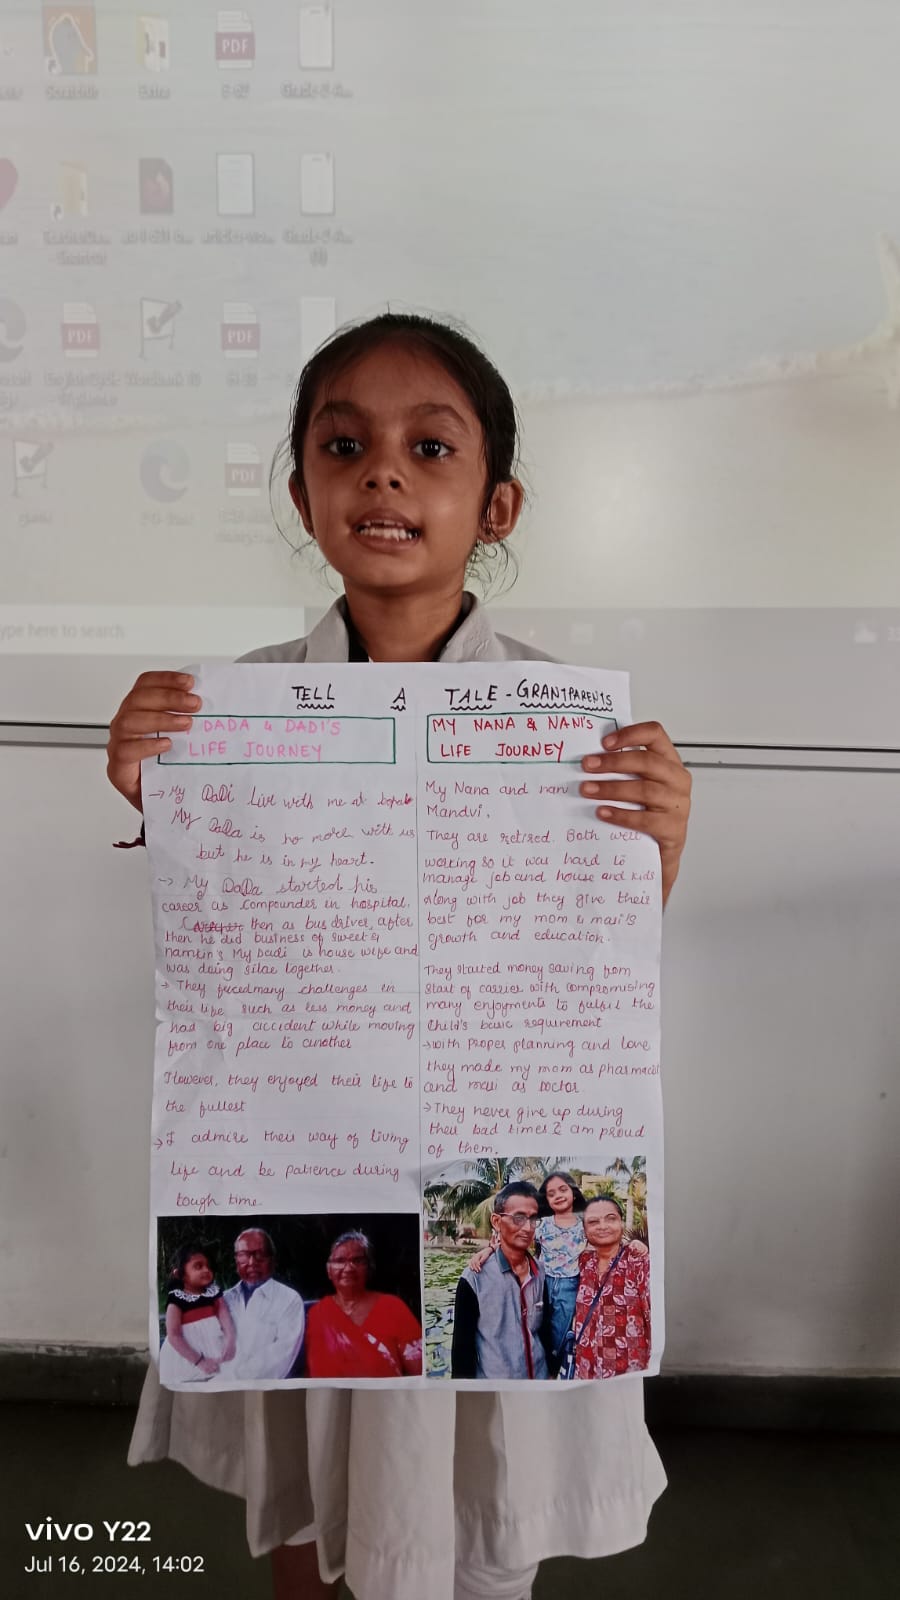 Scratch
Extra
PDF
Grade-8-A...
articles-wo...
Grade-8-A...
(1)
PDF
PDF
PDF
ype here to search
TELL A TALE - GRANTPARENTS
DADA & DADI'S
LIFE JOURNEY
→ My DaDi live with me at
My DaDa is no more with us
but he is in my heart.
→ My DaDa started his
career as compounder in hospital.
then as bus driver, after
then he did business of sweet &
namkin's My Dadi is house wife and
was doing silae together.
→ They faced many challenges in
their life such as less money and
had big accident while moving
from one place to another
However, they enjoyed their life to
the fullest
→ I admire their way of living
life and be patience during
tough time.
MY NANA & NANI'S
LIFE JOURNEY
My Nana and nani
Mandvi.
They are retired. Both well
working so it was hard to
manage job and house and kids
along with job they give their
best for my mom & masi's
growth and education.
They started money saving from
start of carrier with compromising
many enjoyments to fulfil the
child's basic requirement
→ with proper planning and love
they made my mom as pharmacist
and masi as DOCTOR.
→ They never give up during
their bad times I am proud
of them.
vivo Y22
Jul 16, 2024, 14:02